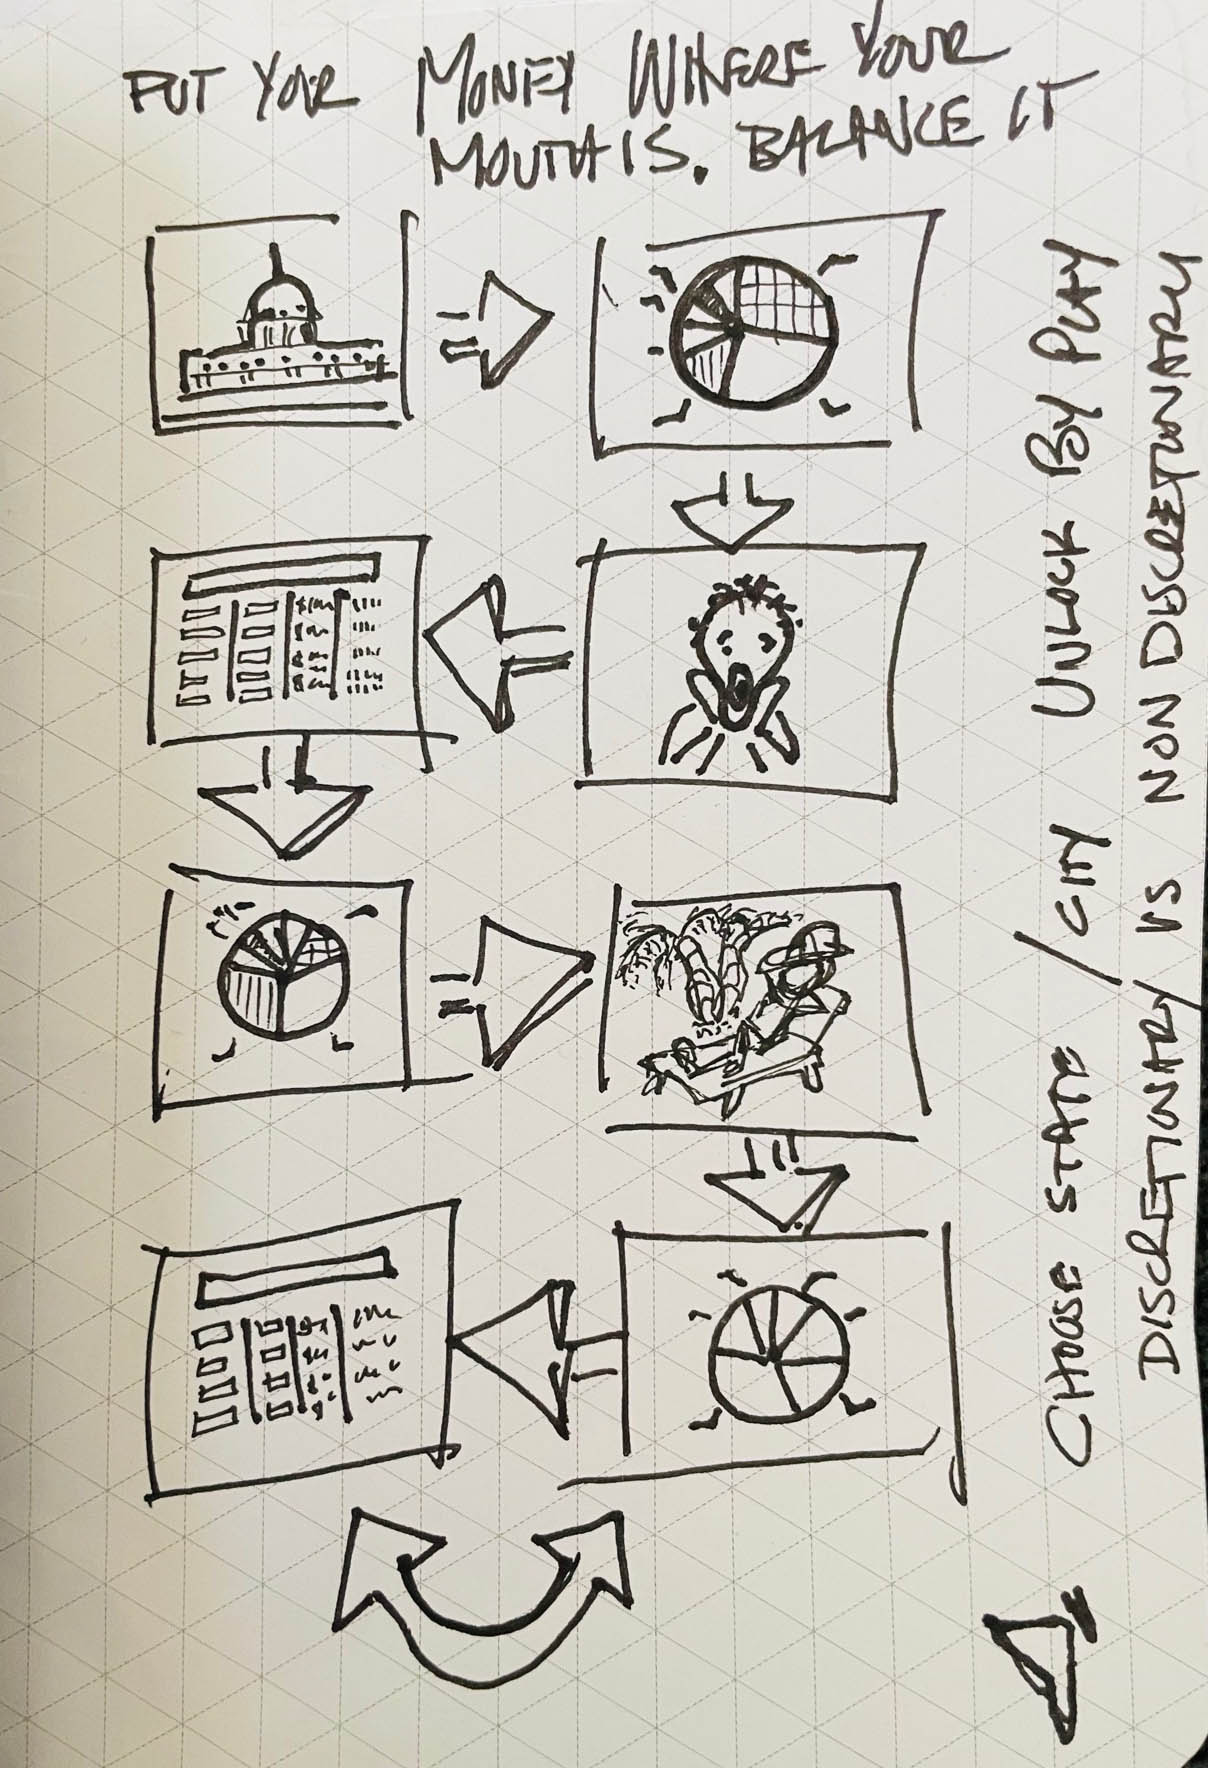 PUT YOUR MONEY WHERE YOUR
MOUTH IS. BALANCE IT
CHOOSE STATE / CITY UNLOCK BY PLAY
DISCRETIONARY VS NON DISCRETIONARY